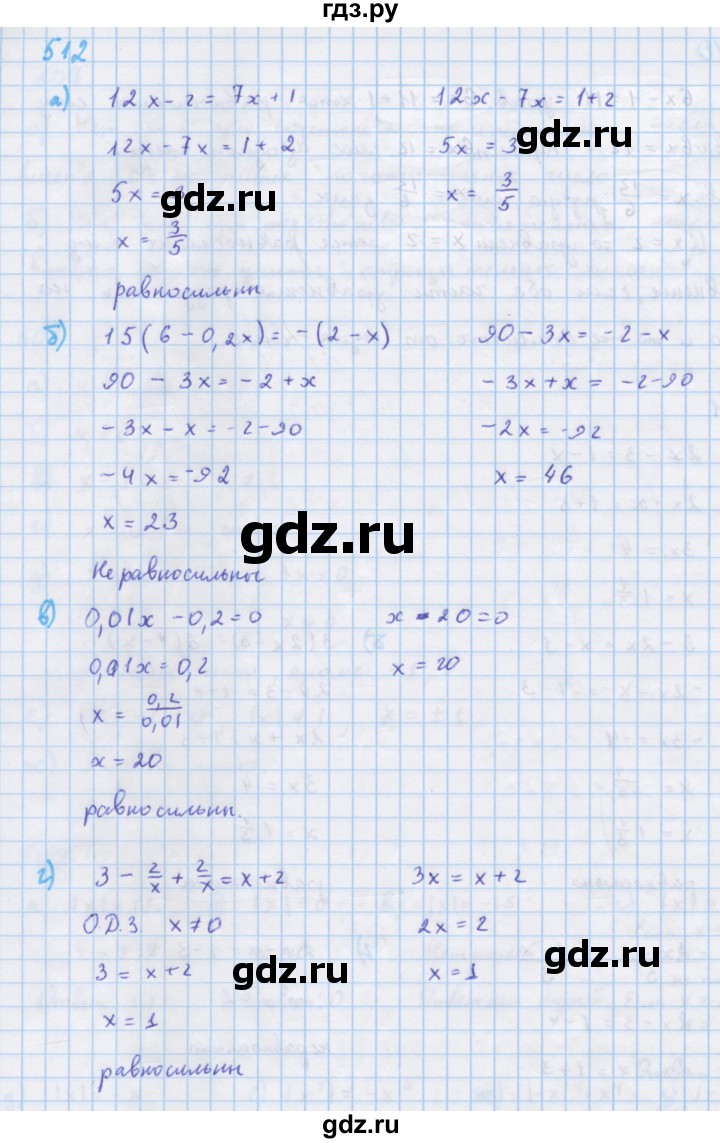 гдз.ру
512
а) 12x - 2 = 7x + 1
12x - 7x = 1 + 2
12x - 7x = 1 + 2
5x = 3
5x = 3
x = 3/5
x = 3/5
равносильны
б) 15(6 - 0,2x) = -(2 - x)
90 - 3x = -2 - x
90 - 3x = -2 + x
-3x + x = -2 - 90
-3x - x = -2 - 90
-2x = -92
-4x = -92
x = 46
x = 23
Не равносильны
в) 0,01x - 0,2 = 0
x - 20 = 0
0,01x = 0,2
x = 20
x = 0,2/0,01
x = 20
равносильны.
г) 3 - 2/x + 2/x = x + 2
3x = x + 2
О.Д.З. x ≠ 0
2x = 2
3 = x + 2
x = 1
x = 1
равносильны
gdz.ru
gdz.ru
gdz.ru
gdz.ru
gdz.ru
gdz.ru
gdz.ru